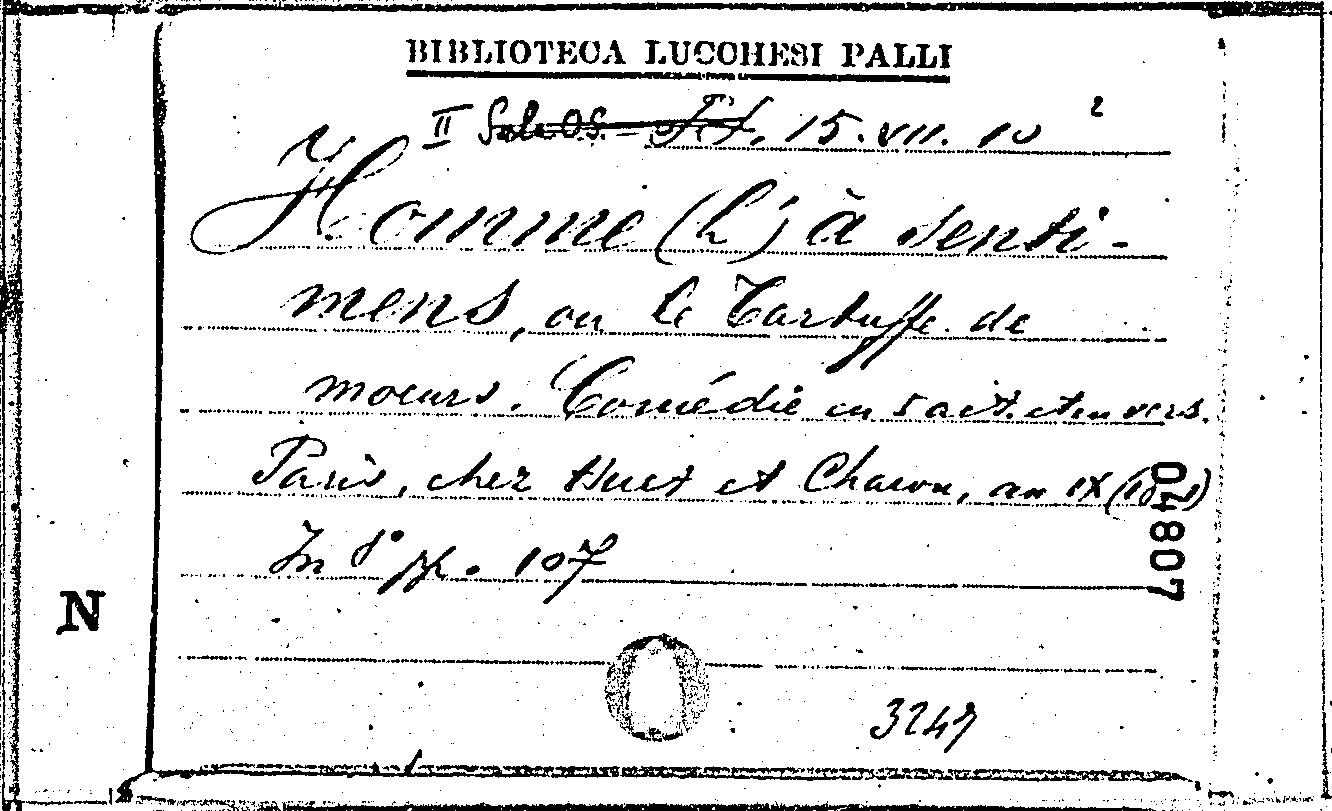 BIBLIOTECA LUCCHESI PALLI
II 15. VII. 10 2
Homme (L') à senti-
mens, ou le Tartuffe de
moeurs. Comédie en 5 act. et en vers.
Paris, chez Huet et Charon, an IX
In 8° pp. 107
04807
N